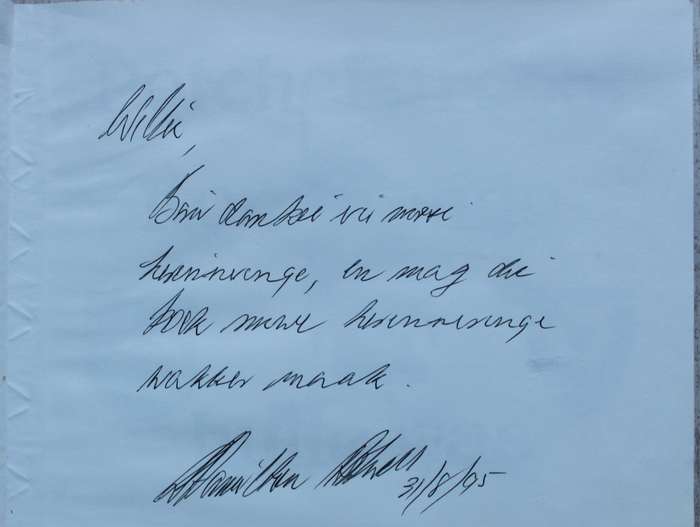 Willie,
Baie dankie vir mooi
herinneringe, en mag die
boek mooi herinneringe
wakker maak.
Hamilton
31/8/95